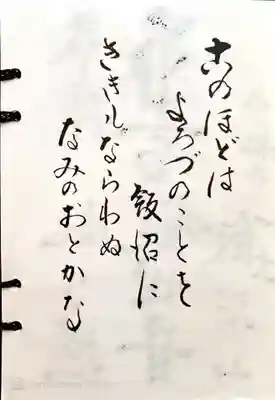 このほどは
よろづのことを
飯沼に
ききならわぬ
なみのおとかな